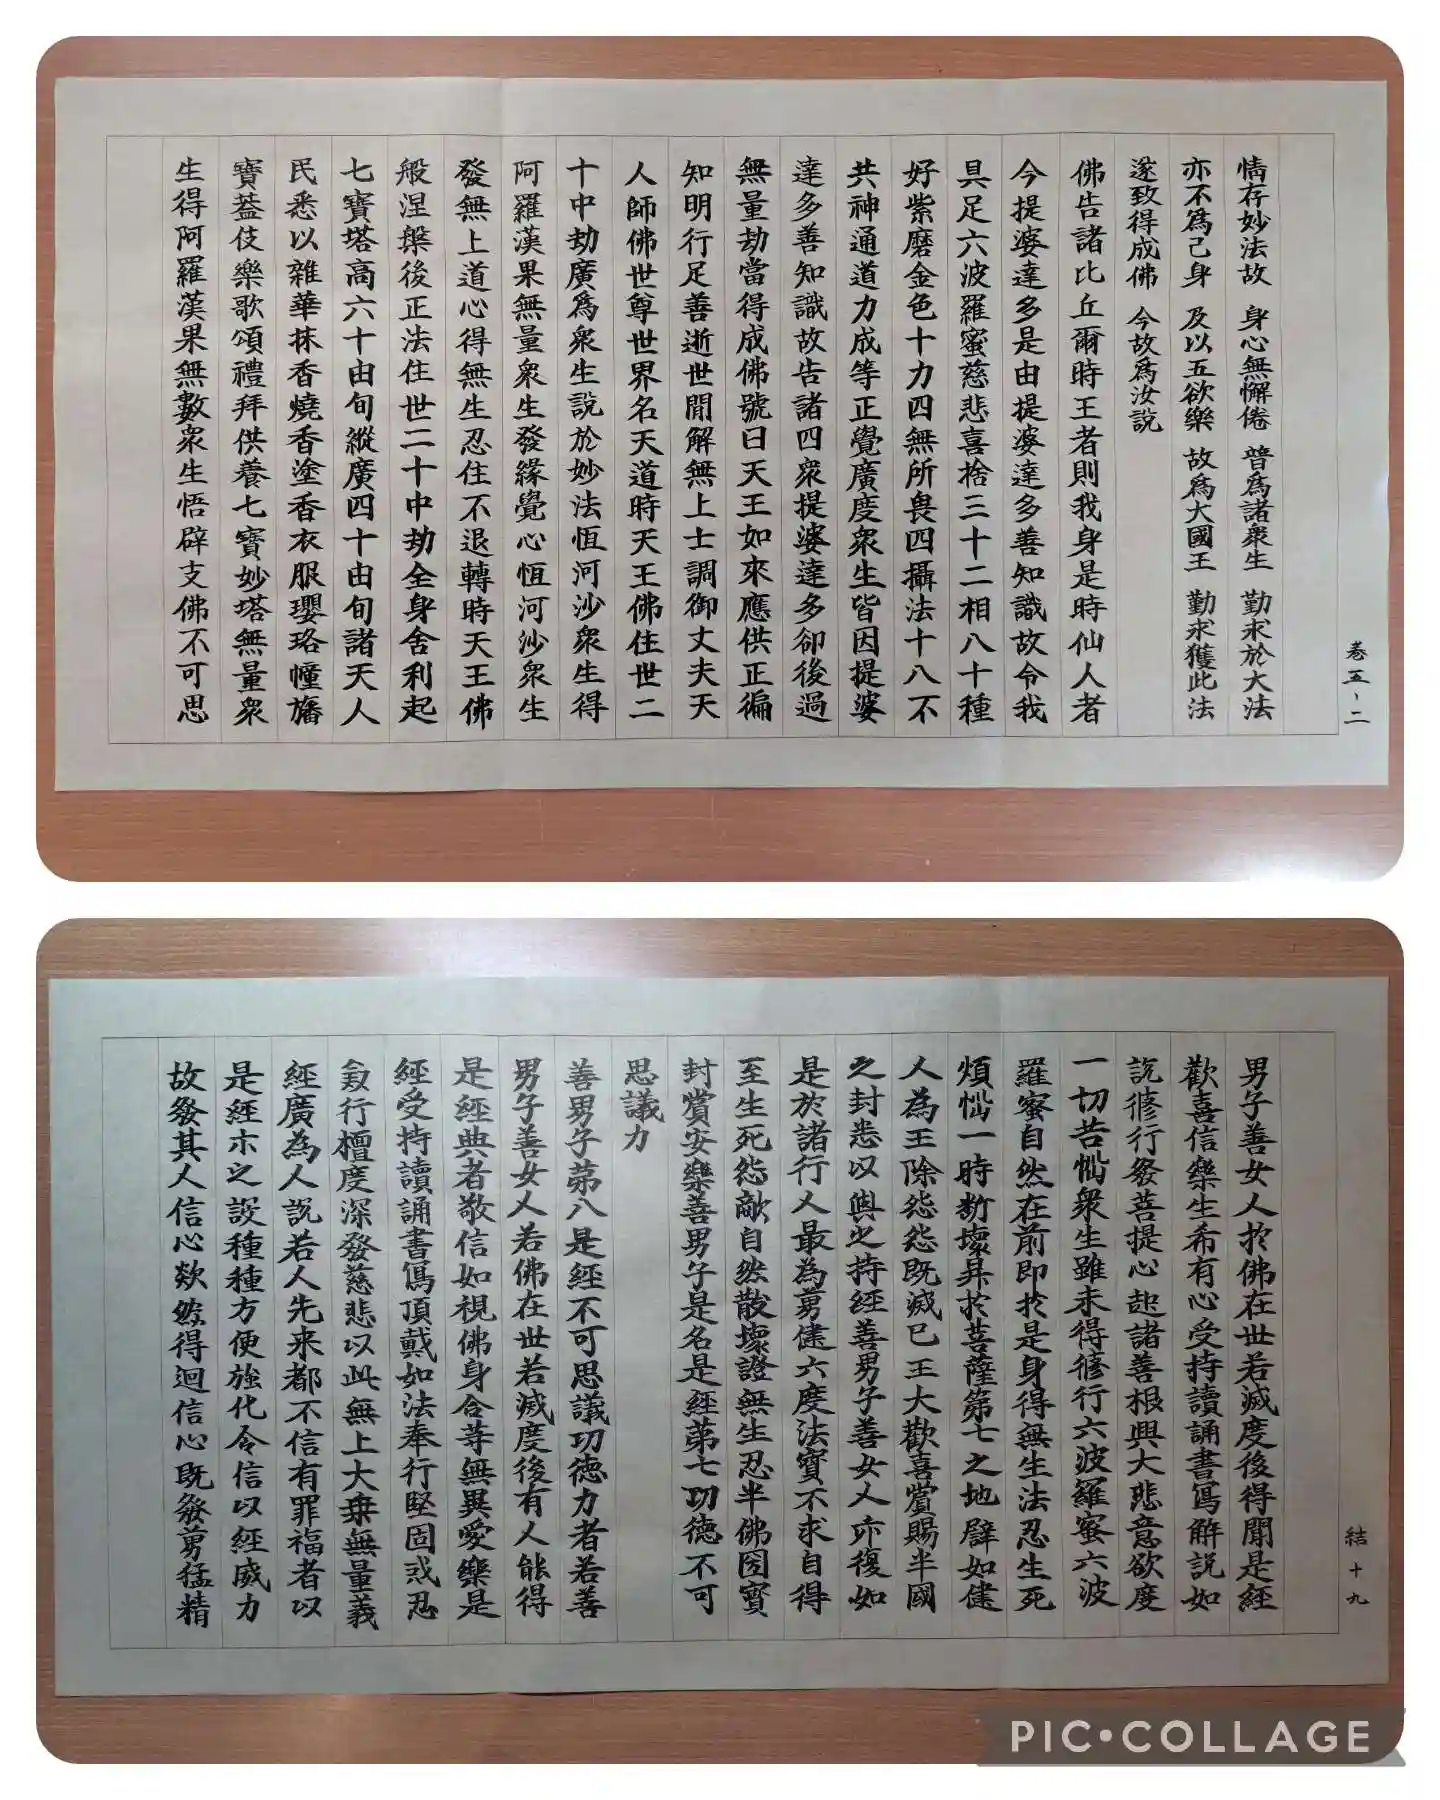 卷五-二
情存妙法故 身心無懈倦 普為諸衆生 勤求於大法
亦不為己身 及以五欲樂 故為大國王 勤求獲此法
遂致得成佛 今故為汝說
佛告諸比丘爾時王者則我身是時仙人者
今提婆達多是由提婆達多善知識故令我
具足六波羅蜜慈悲喜捨三十二相八十種
好紫磨金色十力四無所畏四攝法十八不
共神通道力成等正覺廣度衆生皆因提婆
達多善知識故告諸四衆提婆達多卻後過
無量劫當得成佛號曰天王如來應供正徧
知明行足善逝世間解無上士調御丈夫天
人師佛世尊世界名天道時天王佛住世二
十中劫廣為衆生說於妙法恆河沙衆生得
阿羅漢果無量衆生發緣覺心恆河沙衆生
發無上道心得無生忍住不退轉時天王佛
般涅槃後正法住世二十中劫全身舍利起
七寶塔高六十由旬縱廣四十由旬諸天人
民悉以雜華抹香燒香塗香衣服瓔珞幢旛
寶蓋伎樂歌頌禮拜供養七寶妙塔無量衆
生得阿羅漢果無數衆生悟辟支佛不可思
結十九
男子善女人於佛在世若滅度後得聞是經
歡喜信樂生希有心受持讀誦書寫解説如
説修行發菩提心起諸善根興大悲意欲度
一切苦惱衆生雖未得修行六波羅蜜六波
羅蜜自然在前即於是身得無生法忍生死
煩惱一時斷壞昇於菩薩第七之地譬如健
人為王除怨怨既滅已王大歡喜賞賜半國
之封悉以與之持經善男子善女人亦復如
是於諸行人最為勇健六度法寶不求自得
至生死怨敵自然散壞證無生忍半佛國寶
封賞安樂善男子是名是經第七功德不可
思議力
善男子第八是經不可思議功德力者若善
男子善女人若佛在世若滅度後有人能得
是經典者敬信如視佛身令等無異愛樂是
經受持讀誦書寫頂戴如法奉行堅固戒忍
兼行檀度深發慈悲以此無上大乗無量義
經廣為人説若人先来都不信有罪福者以
是經示之設種種方便強化令信以經威力
故發其人信心欻然得迴信心既發勇猛精